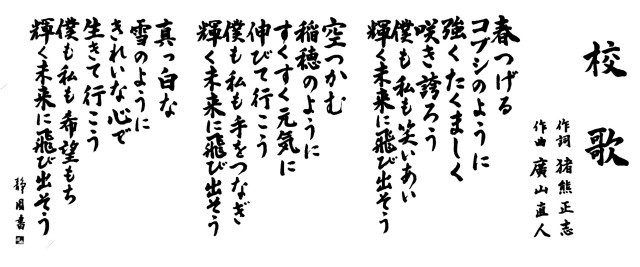 校歌
作詞 猪熊正志
作曲 廣山直人
春つげる
コブシのように
強くたくましく
咲き誇ろう
僕も私も笑いあい
輝く未来に飛び出そう
空つかむ
稲穂のように
すくすく元気に
伸びて行こう
僕も私も手をつなぎ
輝く未来に飛び出そう
真っ白な
雪のように
きれいな心で
生きて行こう
僕も私も希望もち
輝く未来に飛び出そう